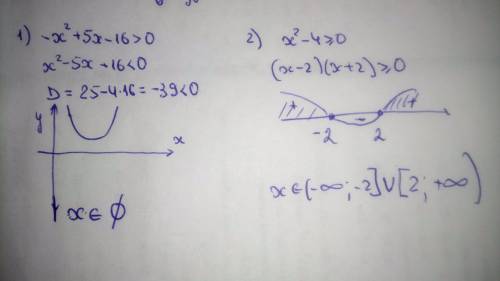 1) -x²+5x-16>0
x²-5x+16<0
D = 25-4·16 = -39<0
y
x
x ∈ ∅
2) x²-4≥0
(x-2)(x+2)≥0
+ - +
-2 2
x∈(-∞;-2]∪[2;+∞)